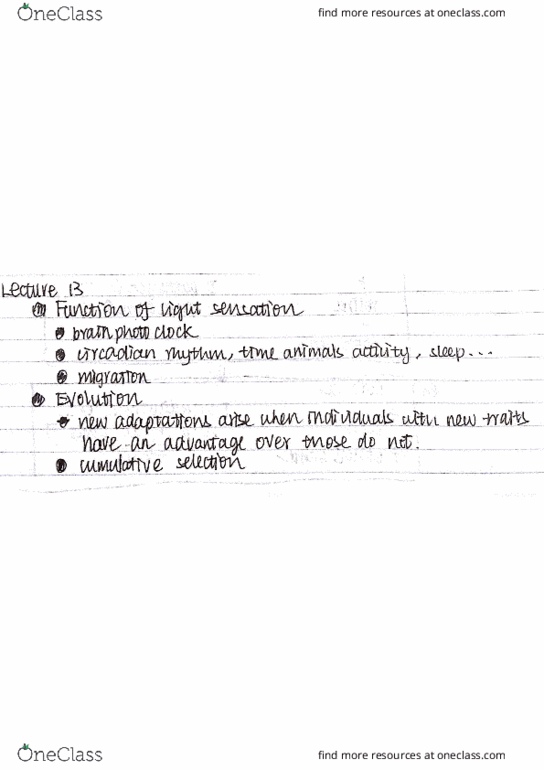 OneClass
find more resources at oneclass.com
Lecture 13
Function of light sensation
brain photo clock
circadian rhythm, time animals activity, sleep...
migration
Evolution
new adaptations arise when individuals with new traits
have an advantage over those do not.
cumulative selection
OneClass
find more resources at oneclass.com